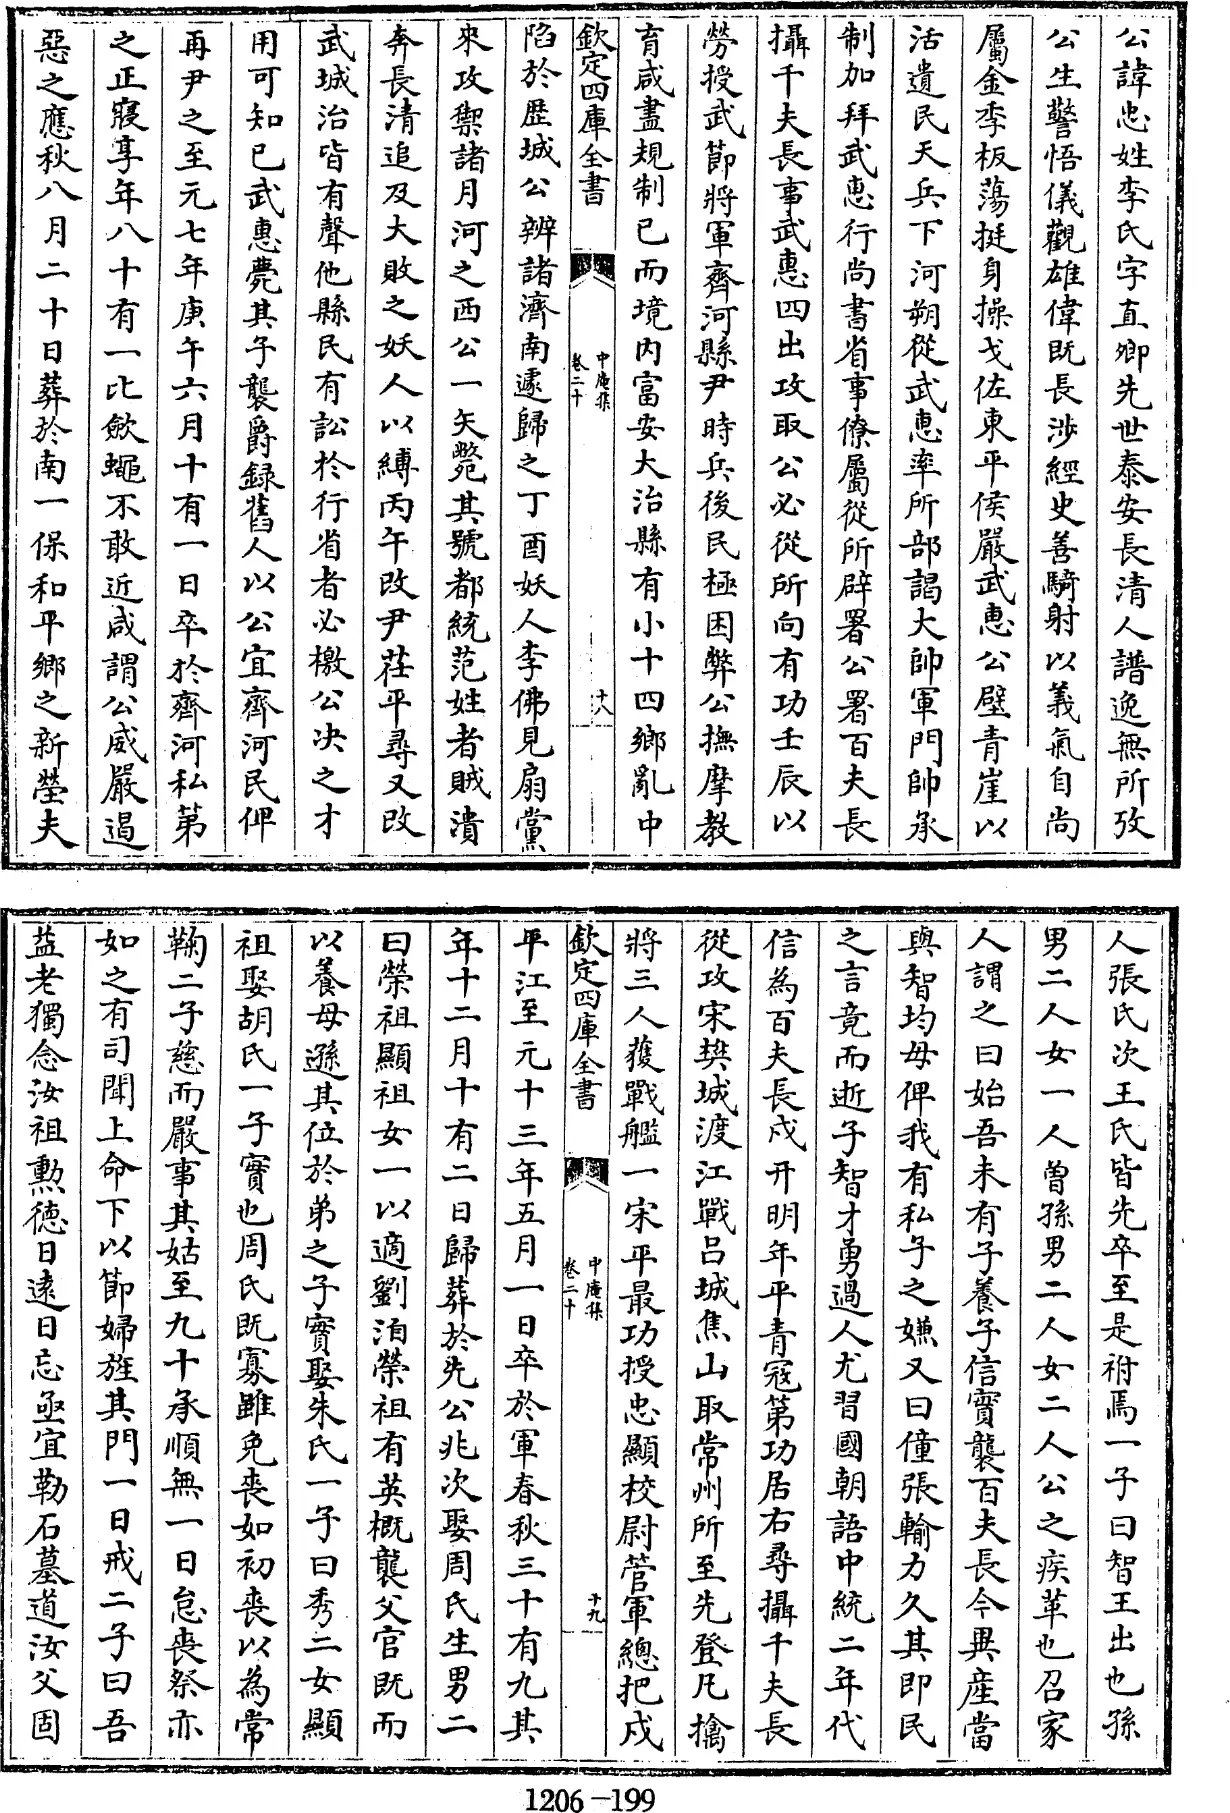 公諱忠姓李氏字直卿先世泰安長清人譜逸無所攷
公生警悟儀觀雄偉既長涉經史善騎射以義氣自尚
屬金季板蕩挺身操戈佐東平侯嚴武惠公壁青崖以
活遺民天兵下河朔從武惠率所部謁大帥軍門帥承
制加拜武惠行尚書省事僚屬從所辟署公署百夫長
攝千夫長事武惠四出攻取公必從所向有功壬辰以
勞授武節將軍齊河縣尹時兵後民極困弊公撫摩教
育咸盡規制已而境内富安大治縣有小十四鄉亂中
欽定四庫全書
中庵集
卷二十
十八
陷於歴城公辨諸濟南遂歸之丁酉妖人李佛見扇黨
來攻禦諸月河之西公一矢斃其號都統范姓者賊潰
奔長清追及大敗之妖人以縛丙午改尹茌平尋又改
武城治皆有聲他縣民有訟於行省者必檄公決之才
用可知已武惠薨其子襲爵録舊人以公宜齊河民俾
再尹之至元七年庚午六月十有一日卒於齊河私第
之正寢享年八十有一比斂蠅不敢近咸謂公威嚴遏
惡之應秋八月二十日葬於南一保和平鄉之新塋夫
人張氏次王氏皆先卒至是祔焉一子曰智王出也孫
男二人女一人曾孫男二人女二人公之疾革也召家
人謂之曰始吾未有子養子信實襲百夫長今異産當
與智均毋俾我有私子之嫌又曰僮張輸力久其即民
之言竟而逝子智才勇過人尤習國朝語中統二年代
信為百夫長戍开明年平青寇第功居右尋攝千夫長
從攻宋樊城渡江戰吕城焦山取常州所至先登凡擒
將三人獲戰艦一宋平最功授忠顯校尉管軍總把戍
欽定四庫全書
中庵集
卷二十
十九
平江至元十三年五月一日卒於軍春秋三十有九其
年十二月十有二日歸葬於先公兆次娶周氏生男二
曰榮祖顯祖女一以適劉洎榮祖有英概襲父官既而
以養母遜其位於弟之子實娶朱氏一子曰秀二女顯
祖娶胡氏一子實也周氏既寡雖免喪如初喪以為常
鞠二子慈而嚴事其姑至九十承順無一日怠喪祭亦
如之有司聞上命下以節婦旌其門一日戒二子曰吾
益老獨念汝祖勲徳日逺日忘亟宜勒石墓道汝父固
1206-199